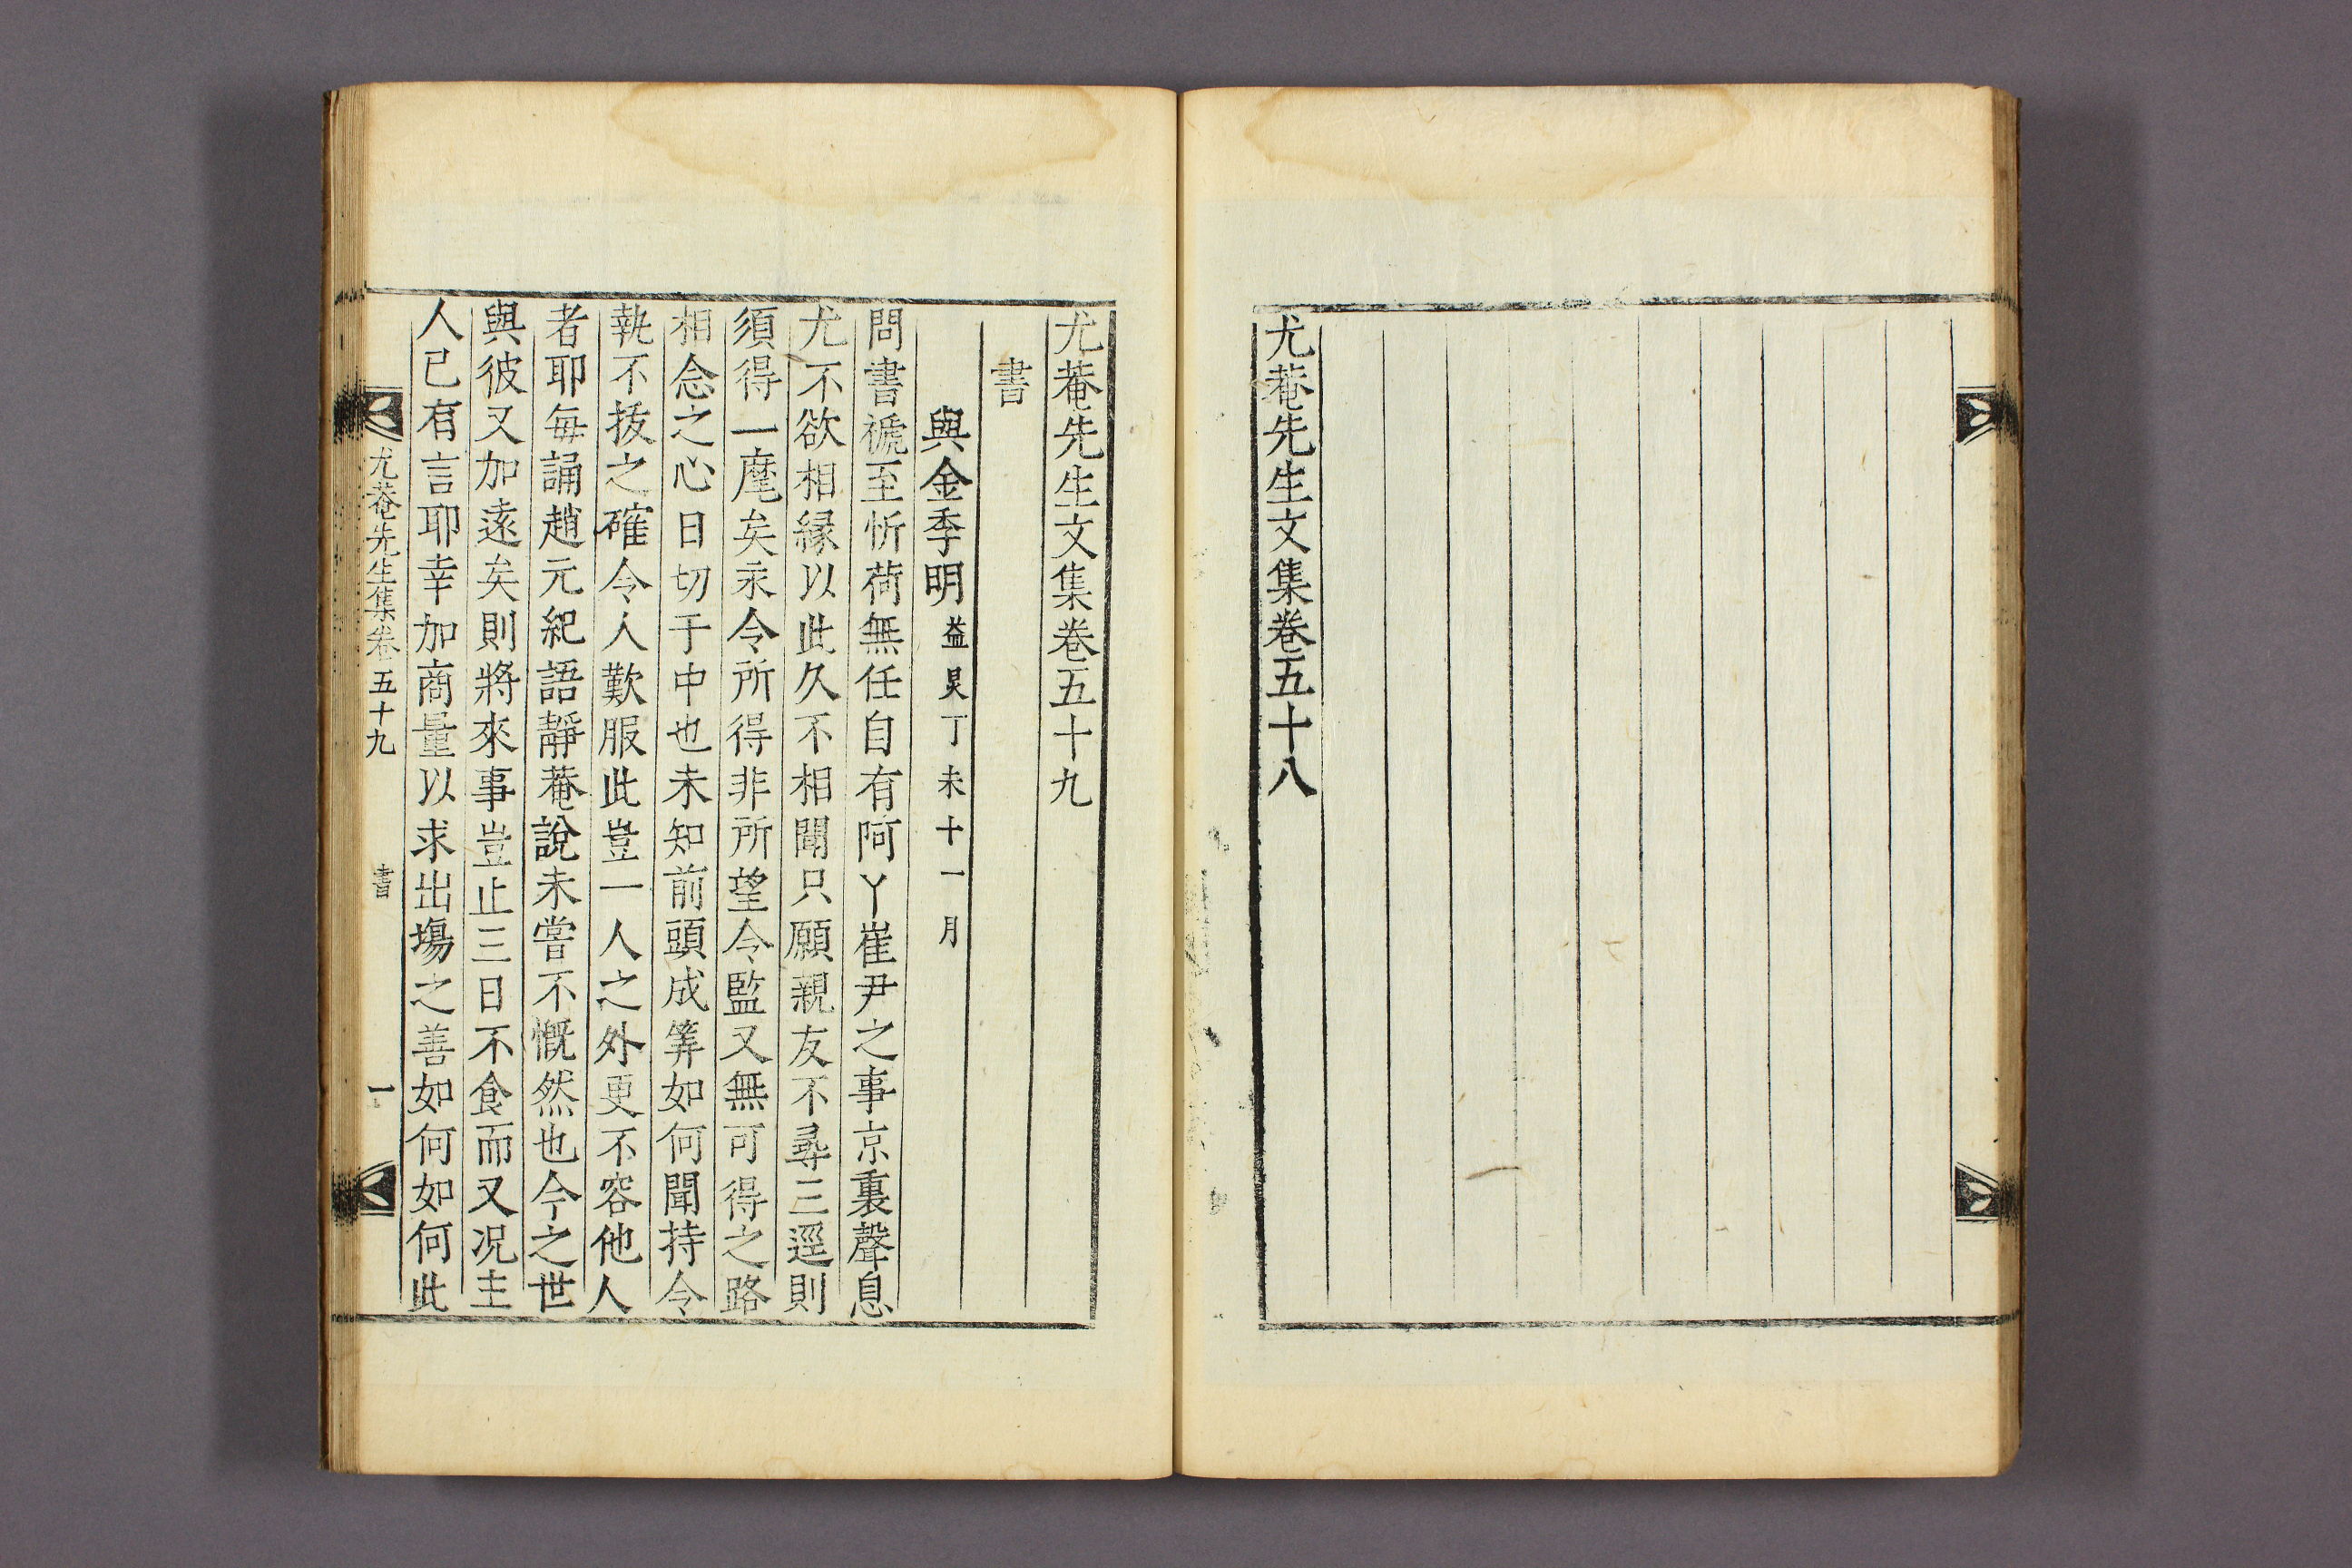 尤菴先生文集卷五十八
尤菴先生文集卷五十九
書
與金季明益炅丁未十一月
問書褫至忻荷無任自有阿丫崔尹之事京裏聲息
尤不欲相縁以此久不相聞只願親友不尋三逕則
須得一麾矣永令所得非所望令監又無可得之路
相念之心日切于中也未知前頭成筭如何聞持令
執不拔之確令人歎服此豈一人之外更不容他人
者耶每誦趙元紀語靜菴說未嘗不慨然也今之世
與彼又加遠矣則將來事豈止三日不食而又况主
人已有言耶幸加商量以求出場之善如何如何此
尤菴先生集卷五十九
書
一